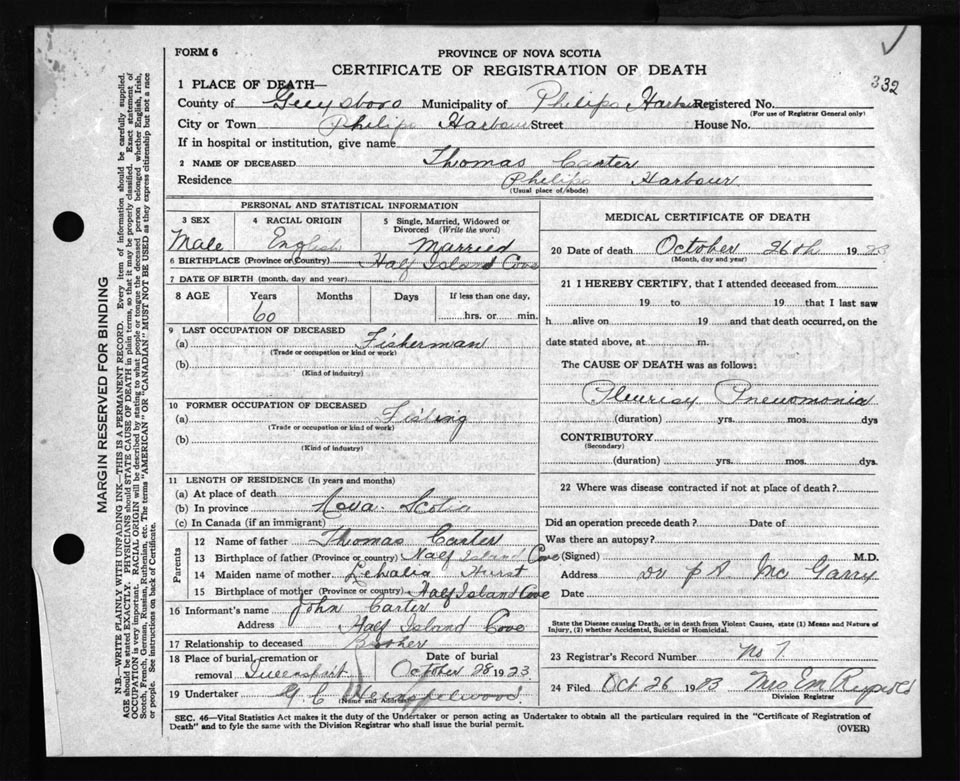 FORM 6
PROVINCE OF NOVA SCOTIA
CERTIFICATE OF REGISTRATION OF DEATH
332
1 PLACE OF DEATH—
County of Guysboro Municipality of Philips Harbour Registered No.
(For use of Registrar General only)
City or Town Philips Harbour Street House No.
If in hospital or institution, give name
2 NAME OF DECEASED Thomas Carter
Residence Philips Harbour
(Usual place of abode)
PERSONAL AND STATISTICAL INFORMATION
3 SEX Male
4 RACIAL ORIGIN English
5 Single, Married, Widowed or Divorced (Write the word) Married
6 BIRTHPLACE (Province or Country) Half Island Cove
7 DATE OF BIRTH (month, day and year)
8 AGE Years 60 Months Days If less than one day, hrs. or min.
9 LAST OCCUPATION OF DECEASED
(a) Fisherman
(Trade or occupation or kind or work)
(b)
(Kind of industry)
10 FORMER OCCUPATION OF DECEASED
(a) Fishing
(Trade or occupation or kind of work)
(b)
(Kind of industry)
11 LENGTH OF RESIDENCE (In years and months)
(a) At place of death
(b) In province Nova Scotia
(c) In Canada (if an immigrant)
Parents
12 Name of father Thomas Carter
13 Birthplace of father (Province or country) Half Island Cove
14 Maiden name of mother Hurst
15 Birthplace of mother (Province or country) Half Island Cove
16 Informant's name John Carter
Address Half Island Cove
17 Relationship to deceased Brother
18 Place of burial, cremation or removal Queensport Date of burial October 28 1923
19 Undertaker G. C.
(Name and Address)
MEDICAL CERTIFICATE OF DEATH
20 Date of death October 26th 1923
(Month, day and year)
21 I HEREBY CERTIFY, that I attended deceased from
19 to 19 that I last saw
h alive on 19 and that death occurred, on the
date stated above, at m.
The CAUSE OF DEATH was as follows:
Pleurisy Pneumonia
(duration) yrs. mos. dys
CONTRIBUTORY
(Secondary)
(duration) yrs. mos. dys.
22 Where was disease contracted if not at place of death?
Did an operation precede death? Date of
Was there an autopsy?
(Signed) M.D.
Address Dr Mc Garry
Date
State the Disease causing Death, or in death from Violent Causes, state (1) Means and Nature of
Injury, (2) whether Accidental, Suicidal or Homicidal.
23 Registrar's Record Number No 7
24 Filed Oct 26 1923 Mrs Em
Division Registrar
SEC. 46—Vital Statistics Act makes it the duty of the Undertaker or person acting as Undertaker to obtain all the particulars required in the "Certificate of Registration of
Death" and to fyle the same with the Division Registrar who shall issue the burial permit.
(OVER)
MARGIN RESERVED FOR BINDING
N.B.—WRITE PLAINLY WITH UNFADING INK—THIS IS A PERMANENT RECORD. Every item of information should be carefully supplied.
AGE should be stated EXACTLY. PHYSICIANS should STATE CAUSE OF DEATH in plain terms, so that it may be properly classified. Exact statement of
OCCUPATION is very important. RACIAL ORIGIN will be described by stating to what people or tongue the deceased person belonged whether English, Irish,
Scotch, French, German, Russian, Ruthenian, etc. The terms "AMERICAN" OR "CANADIAN" MUST NOT BE USED as they express citizenship but not a race
or people. See instructions on back of Certificate.